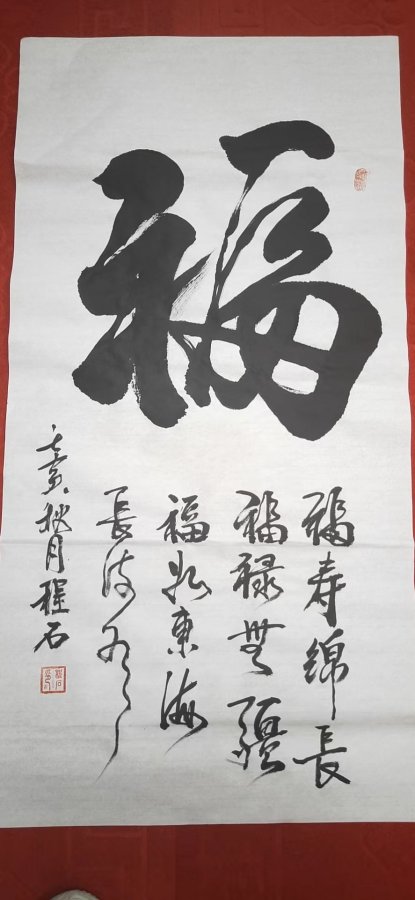 福
福寿綿長
福禄無疆
福如東海
長流
己亥秋月程石